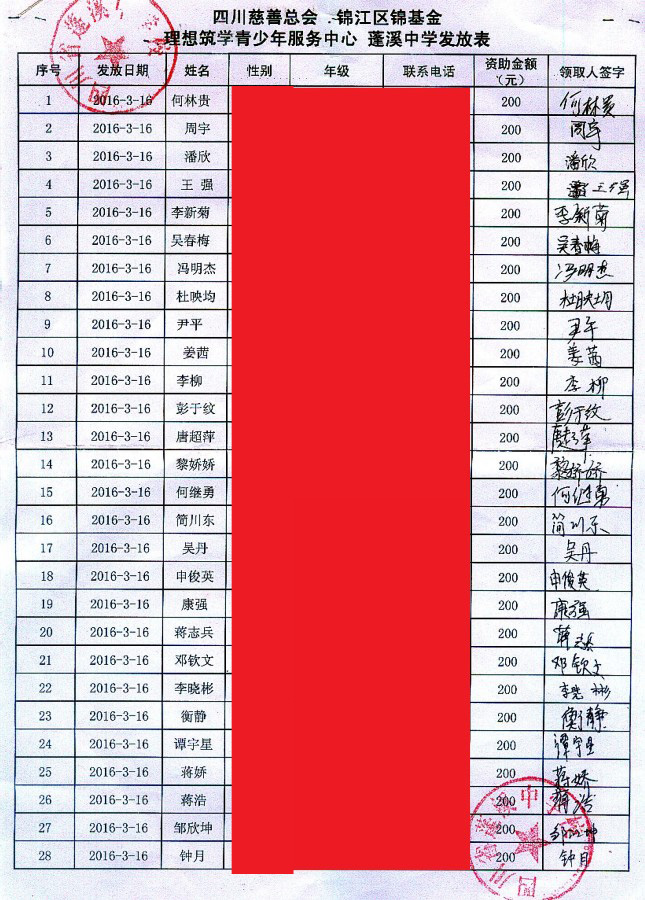 四川慈善总会 . 锦江区锦基金
理想筑学青少年服务中心 蓬溪中学发放表
序号 发放日期 姓名 性别 年级 联系电话 资助金额（元） 领取人签字
1 2016-3-16 何林贵 200 何林贵
2 2016-3-16 周宇 200 周宇
3 2016-3-16 潘欣 200 潘欣
4 2016-3-16 王 强 200 王强
5 2016-3-16 李新菊 200 李新菊
6 2016-3-16 吴春梅 200 吴春梅
7 2016-3-16 冯明杰 200 冯明杰
8 2016-3-16 杜映均 200 杜映均
9 2016-3-16 尹平 200 尹平
10 2016-3-16 姜茜 200 姜茜
11 2016-3-16 李柳 200 李柳
12 2016-3-16 彭于纹 200 彭于纹
13 2016-3-16 唐超萍 200 唐超萍
14 2016-3-16 黎娇娇 200 黎娇娇
15 2016-3-16 何继勇 200 何继勇
16 2016-3-16 简川东 200 简川东
17 2016-3-16 吴丹 200 吴丹
18 2016-3-16 申俊英 200 申俊英
19 2016-3-16 康强 200 康强
20 2016-3-16 蒋志兵 200
21 2016-3-16 邓钦文 200 邓钦文
22 2016-3-16 李晓彬 200 李晓彬
23 2016-3-16 衡静 200 衡静
24 2016-3-16 谭宇星 200 谭宇星
25 2016-3-16 蒋娇 200 蒋娇
26 2016-3-16 蒋浩 200 蒋浩
27 2016-3-16 邹欣坤 200 邹欣坤
28 2016-3-16 钟月 200 钟月
四川省蓬溪中学
四川省蓬溪中学